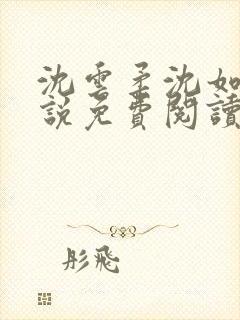 沈雲柔沈如
說免費閱讀
彤飛